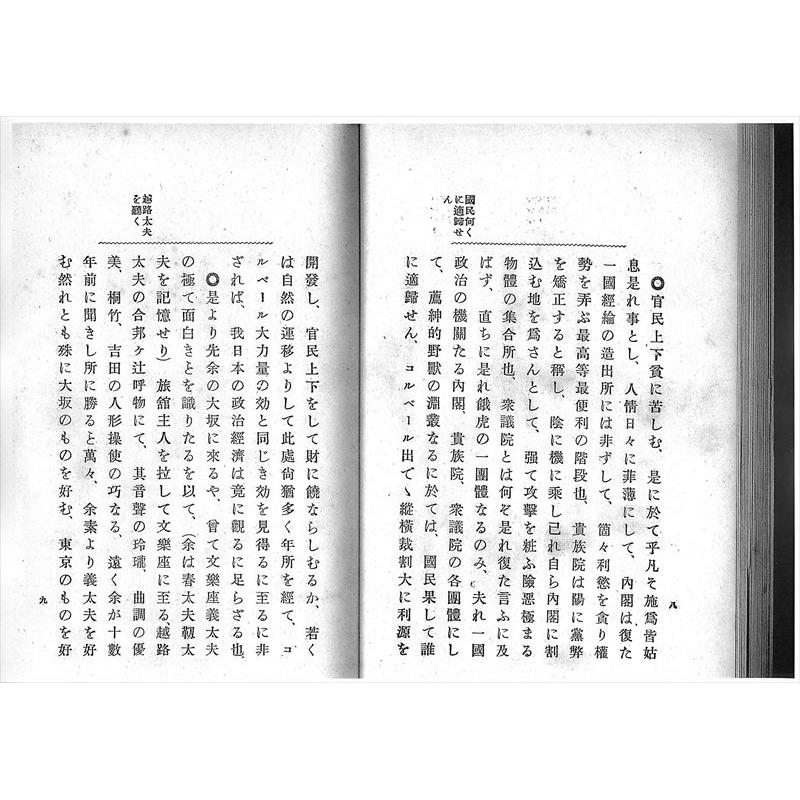 國民何く
に適歸せ
ん
◎官民上下貧に苦しむ、是に於て乎凡そ施爲皆姑
息是れ事とし、人情日々に菲薄にして、內閣は復た
一國經綸の造出所には非ずして、箇々利慾を貪り權
勢を弄ぶ最高等最便利の階段也、貴族院は陽に黨弊
を矯正すると稱し、陰に機に乘し已れ自ら內閣に割
込む地を爲さんとして、强て攻擊を粧ふ陰惡極まる
物體の集合所也、衆議院とは何ぞ是れ復た言ふに及
ばず、直ちに是れ餓虎の一團體なるのみ、夫れ一國
政治の機關たる內閣、貴族院、衆議院の各團體にし
て、薦紳的野獸の淵叢なるに於ては、國民果して誰
に適歸せん、コルベール出でゝ縱橫裁割大に利源を
八
越路太夫
を聽く
開發し、官民上下をして財に饒ならしむるか、若く
は自然の運移よりして此處尙猶多く年所を經て、コ
ルベール大力量の効と同じき効を見得るに至るに非
ざれば、我日本の政治經濟は竟に觀るに足らざる也
◎是より先余の大坂に來るや、曾て文樂座義太夫
の極て面白きとを識りたるを以て、(余は春太夫靱太
夫を記憶せり)旅館主人を拉して文樂座に至る、越路
太夫の合邦ヶ辻呼物にて、其音聲の玲瓏、曲調の優
美、桐竹、吉田の人形操使の巧なる、遠く余が十數
年前に聞きし所に勝ると萬々、余素より義太夫を好
む然れとも殊に大坂のものを好む、東京のものを好
九